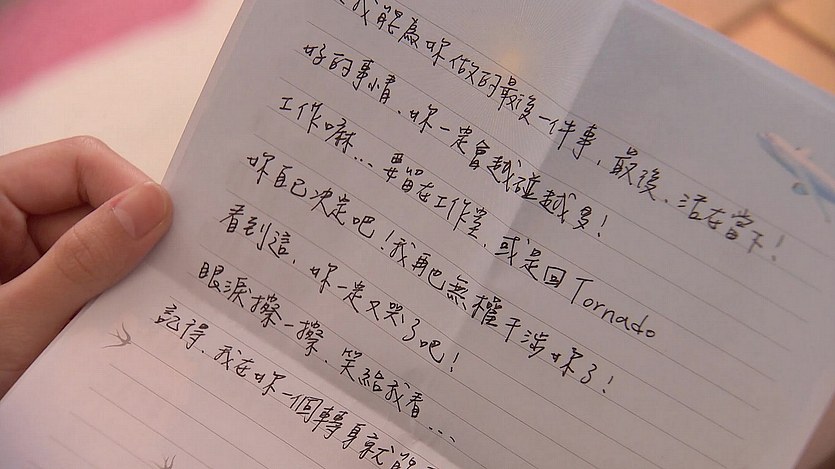 我能為妳做的最後一件事，最後，活在當下！
好的事情，妳一定會越碰越多！
工作嘛…要留在工作室，或是回Tornado
妳自己決定吧！我再也無權干涉妳了！
看到這，妳一定又哭了吧！
眼淚擦一擦，笑給我看…
記得，我在妳一個轉身就